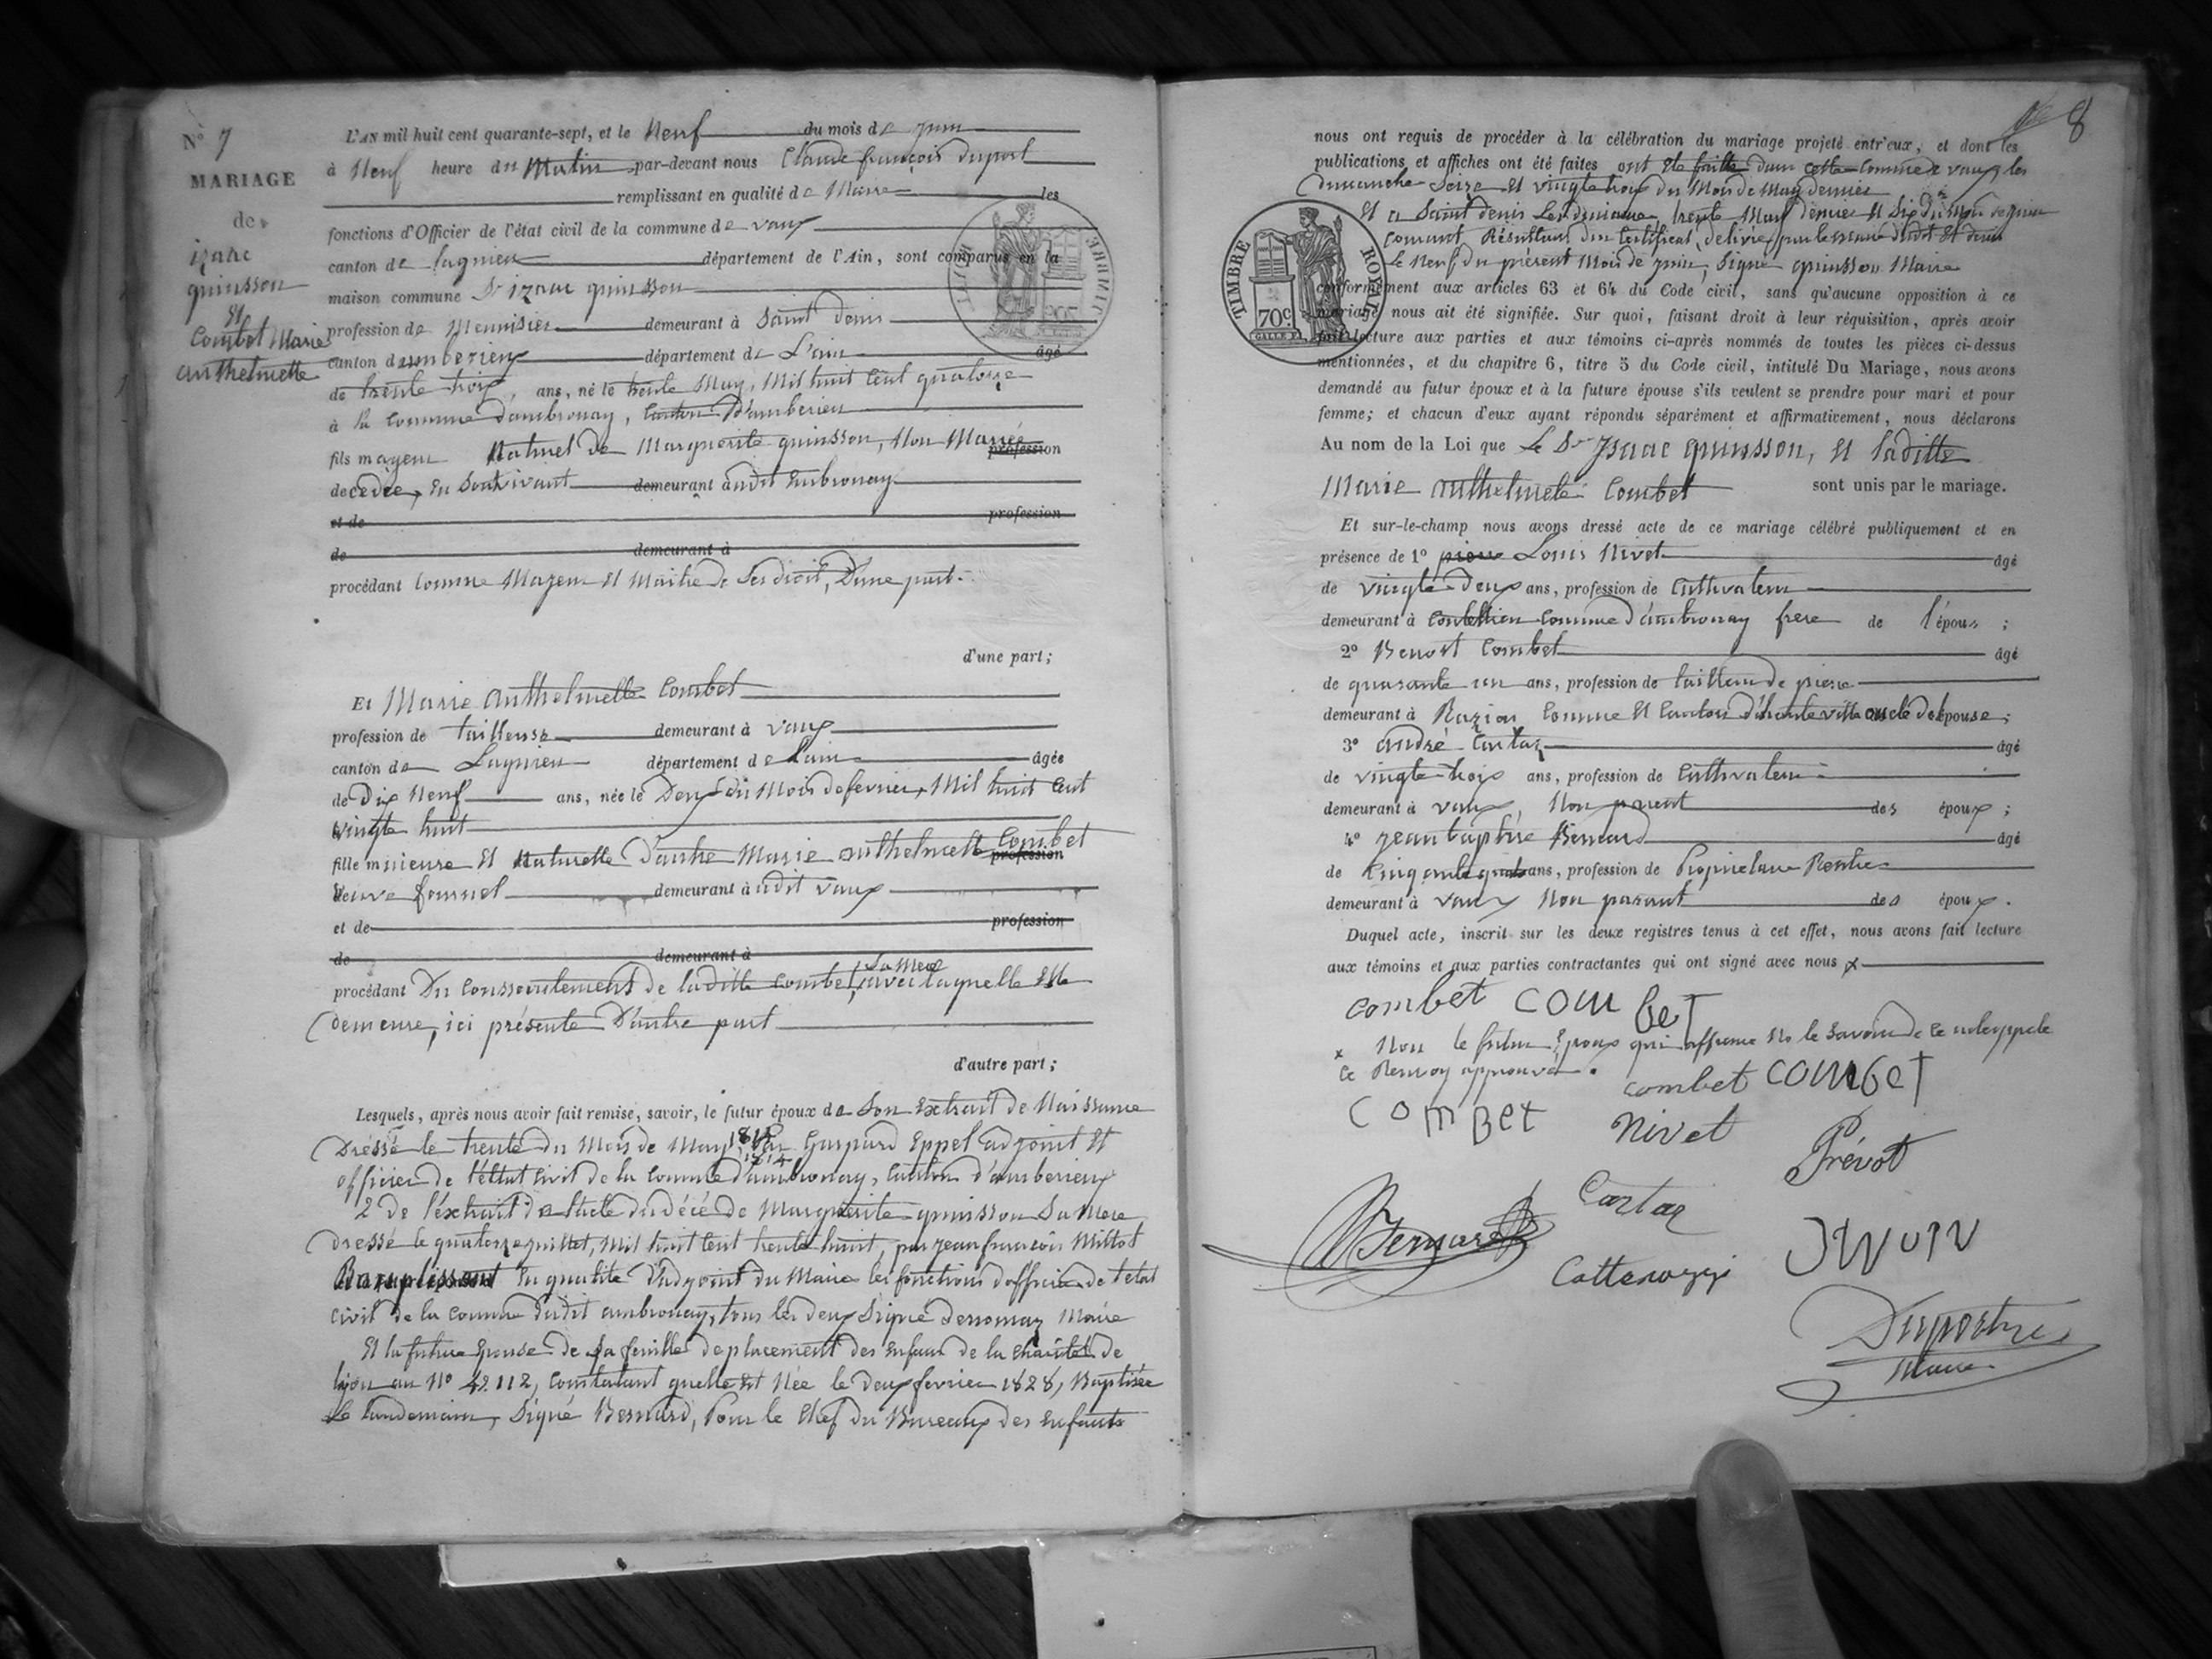 N° 7
MARIAGE
de
izaac
quinsson
et
Combet Marie
anthelmette
L'AN mil huit cent quarante-sept, et le Neuf du mois de juin
à Neuf heure du Matin par-devant nous Claude françois duport
remplissant en qualité de Maire les
fonctions d'Officier de l'état civil de la commune de vaux
canton de lagnieu département de l'Ain, sont comparus en la
maison commune Sr izaac quinsson
profession de Menuisier demeurant à Saint denis
canton d'amberieux département de L'ain âgé
de trente trois, ans, né le trente May, Mil huit Cent quatorze
à la Commune d'ambronay, Canton d'amberieu
fils mageur Naturel de Marguerite quinsson, Non Mariée profession
decedée, en Son vivant demeurant audit Enbronay
et de profession
de demeurant à
procédant Comme Mageur et Maitre de Ses droit, D'une part.
d'une part;
Et Marie anthelmette Combet
profession de tailleuse demeurant à vaux
canton de Lagnieu département de l'ain âgée
de Dix Neuf ans, née le Deux du Mois de fevrier, Mil huit Cent
vingte huit
fille mineure et Naturelle D'autre Marie anthelmette Combet profession
veuve fournel demeurant à udit vaux
et de profession
de demeurant à
procédant Du Conssentement de laditte Combet, Sa Mere avec laquelle Elle
demeure, ici présente D'autre part
d'autre part;
Lesquels, après nous avoir fait remise, savoir, le futur époux de Son Extrait de Naissance
Dressé le trente du Mois de May 1814 Par Gaspard Eppel adjoint et
1814
officier de l'ettat Civil de la Commune d'ambronay, Canton d'amberieux
2 de l'éxtrait de l'acte du décé de Marguerite quinsson Sa Mere
dressé le quatorze juillet, Mil huit Cent trente huit, par jean françois Millot
Ramplissant En qualité D'adjoint du Maire les fonctions d'officier de l'etat
civil de la Commune dudit ambronay, tous les deux Signé dessomaz Maire
Et la future Epouse de Sa feuille de placement des Enfans de la Charité de
lyon au N° 42112, Constatant quelle Est Née le deux fevrier 1828, Baptisée
Le landemain, Signé Bernard, Pour le Chef du Bureaux des Enfants
8
nous ont requis de procéder à la célébration du mariage projeté entr'eux, et dont les
publications et affiches ont été faites ont ete faitte dans cette Comme de vaux les
dimanche Seize et vingte trois du Mois de May dernier
Et a Saint denis Les dimanche trente May dernier et Six du mois de juin
Courant Résultant du Certificat délivré par le maire dudit St denis
le Neuf du présent Mois de juin, Signé quinsson Maire
TIMBRE ROYAL
70c
conformément aux articles 63 et 64 du Code civil, sans qu'aucune opposition à ce
mariage nous ait été signifiée. Sur quoi, faisant droit à leur réquisition, après avoir
fait lecture aux parties et aux témoins ci-après nommés de toutes les pièces ci-dessus
mentionnées, et du chapitre 6, titre 5 du Code civil, intitulé Du Mariage, nous avons
demandé au futur époux et à la future épouse s'ils veulent se prendre pour mari et pour
femme; et chacun d'eux ayant répondu séparément et affirmativement, nous déclarons
Au nom de la Loi que le Sr Isaac quinsson, et laditte
Marie anthelmete Combet sont unis par le mariage.
Et sur-le-champ nous avons dressé acte de ce mariage célébré publiquement et en
présence de 1° Louis Nivet âgé
de vingte Deux ans, profession de Cultivateur
demeurant à Commune d'ambronay frere de l'époux;
2° Benoit Combet âgé
de quarante un ans, profession de tailleur de piere
demeurant à Comune et Canton d'hauteville oncle de l'épouse;
3° andré Cartaz âgé
de vingte trois ans, profession de Cultivateur
demeurant à vaux, Non parent des époux;
4° jean baptiste Bernard âgé
de Cinquante quatre ans, profession de Proprietaire Rentier
demeurant à vaux Non parant des époux.
Duquel acte, inscrit sur les deux registres tenus à cet effet, nous avons fait lecture
aux témoins et aux parties contractantes qui ont signé avec nous x
combet comBeT
x Non le futur Epoux qui affirme No le Savoir de ce interppele
Ce Renvoy approuvé.
combet comBeT
ComBet
Nivet
Prévot
Bernard
Cartaz
Duport
Maire